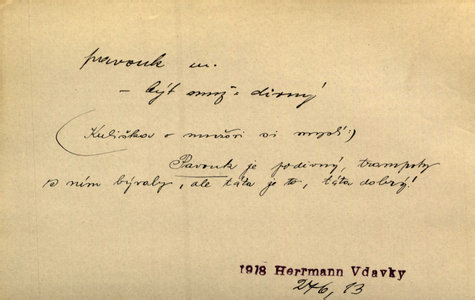 pavouk m.
– být muž = divný
(Kuliška o muži si myslí:)
Pavouk je podivný, trampoty
s ním bývaly, ale táta je to, táta dobrý!
1918 Herrmann Vdavky
246, 13